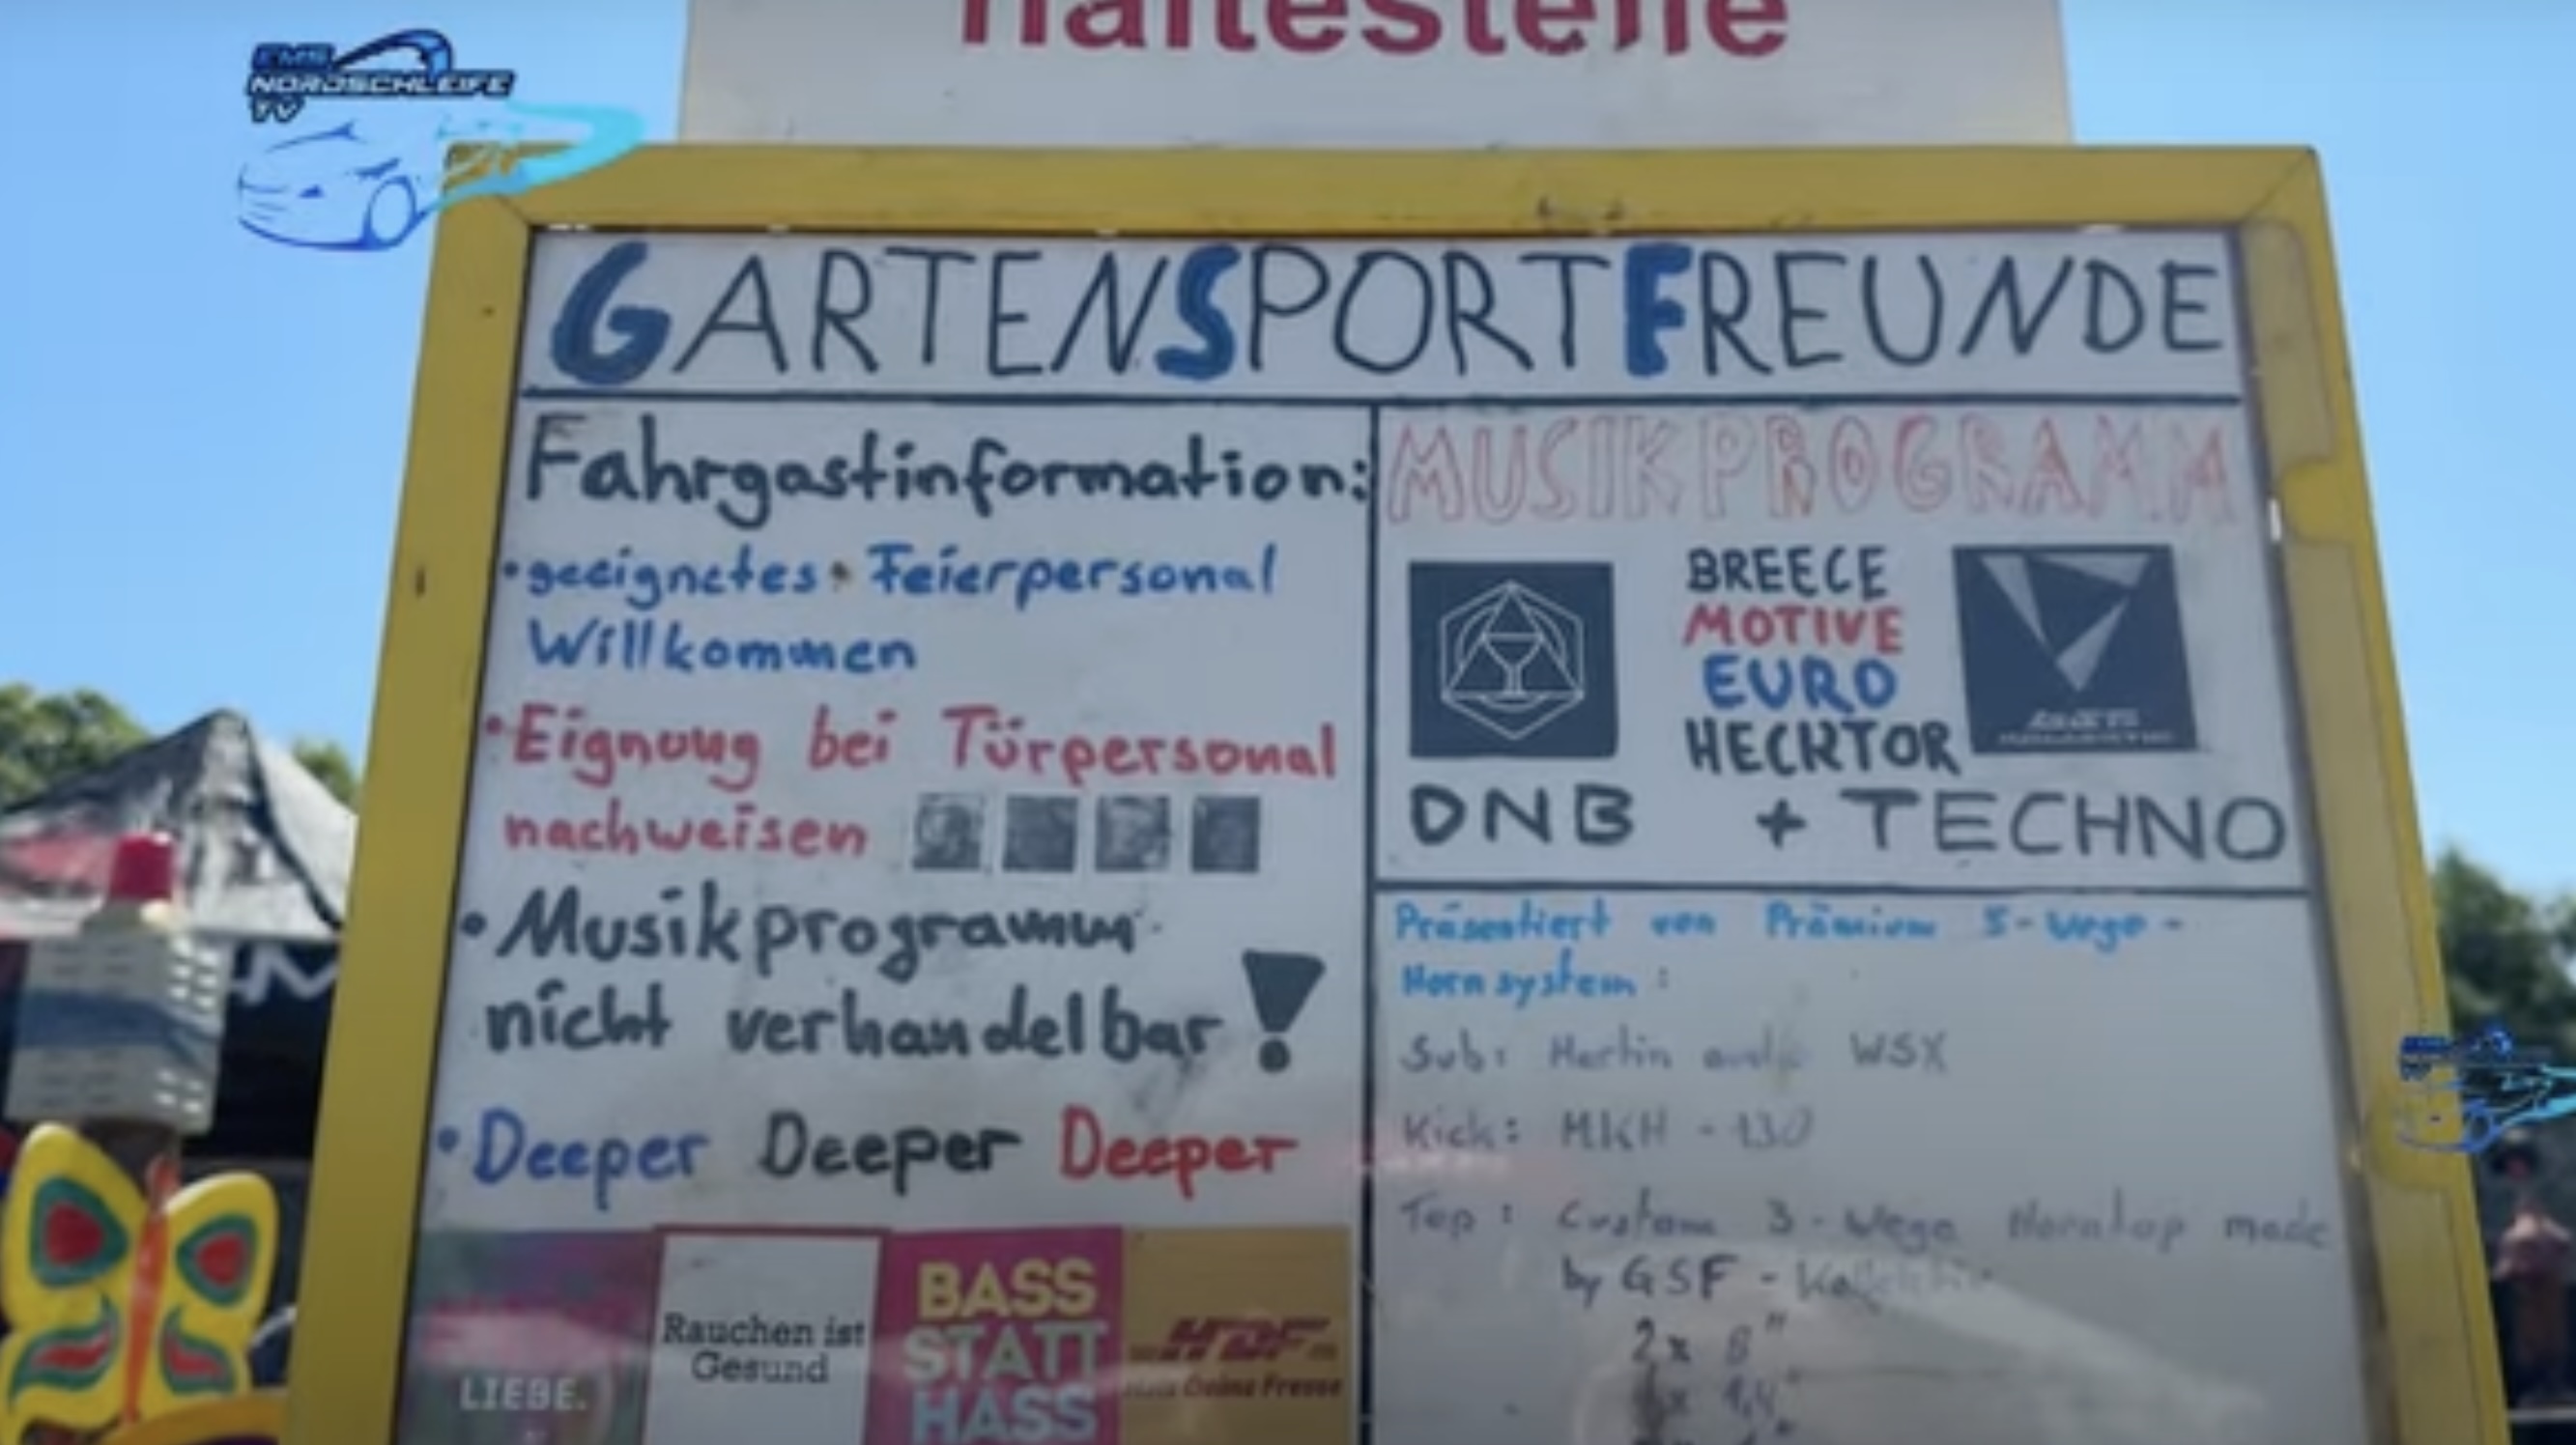 Haltestelle
EMS
NORDSCHLEIFE
TV
GARTENSPORTFREUNDE
Fahrgastinformation:
• geeignetes • Feierpersonal
Willkommen
• Eignung bei Türpersonal
nachweisen
• Musikprogramm
nicht verhandelbar!
• Deeper Deeper Deeper
LIEBE.
Rauchen ist
Gesund
BASS
STATT
HASS
HDF
Deine Fresse
MUSIKPROGRAMM
BREECE
MOTIVE
EURO
HECKTOR
DNB + TECHNO
Präsentiert von Prämium 5-Wege-
Hornsystem:
Sub: Martin audio WSX
Kick: MKH - 130
Top: Custom 3-Wege Horntop made
by GSF -
2x 8"
1,4"